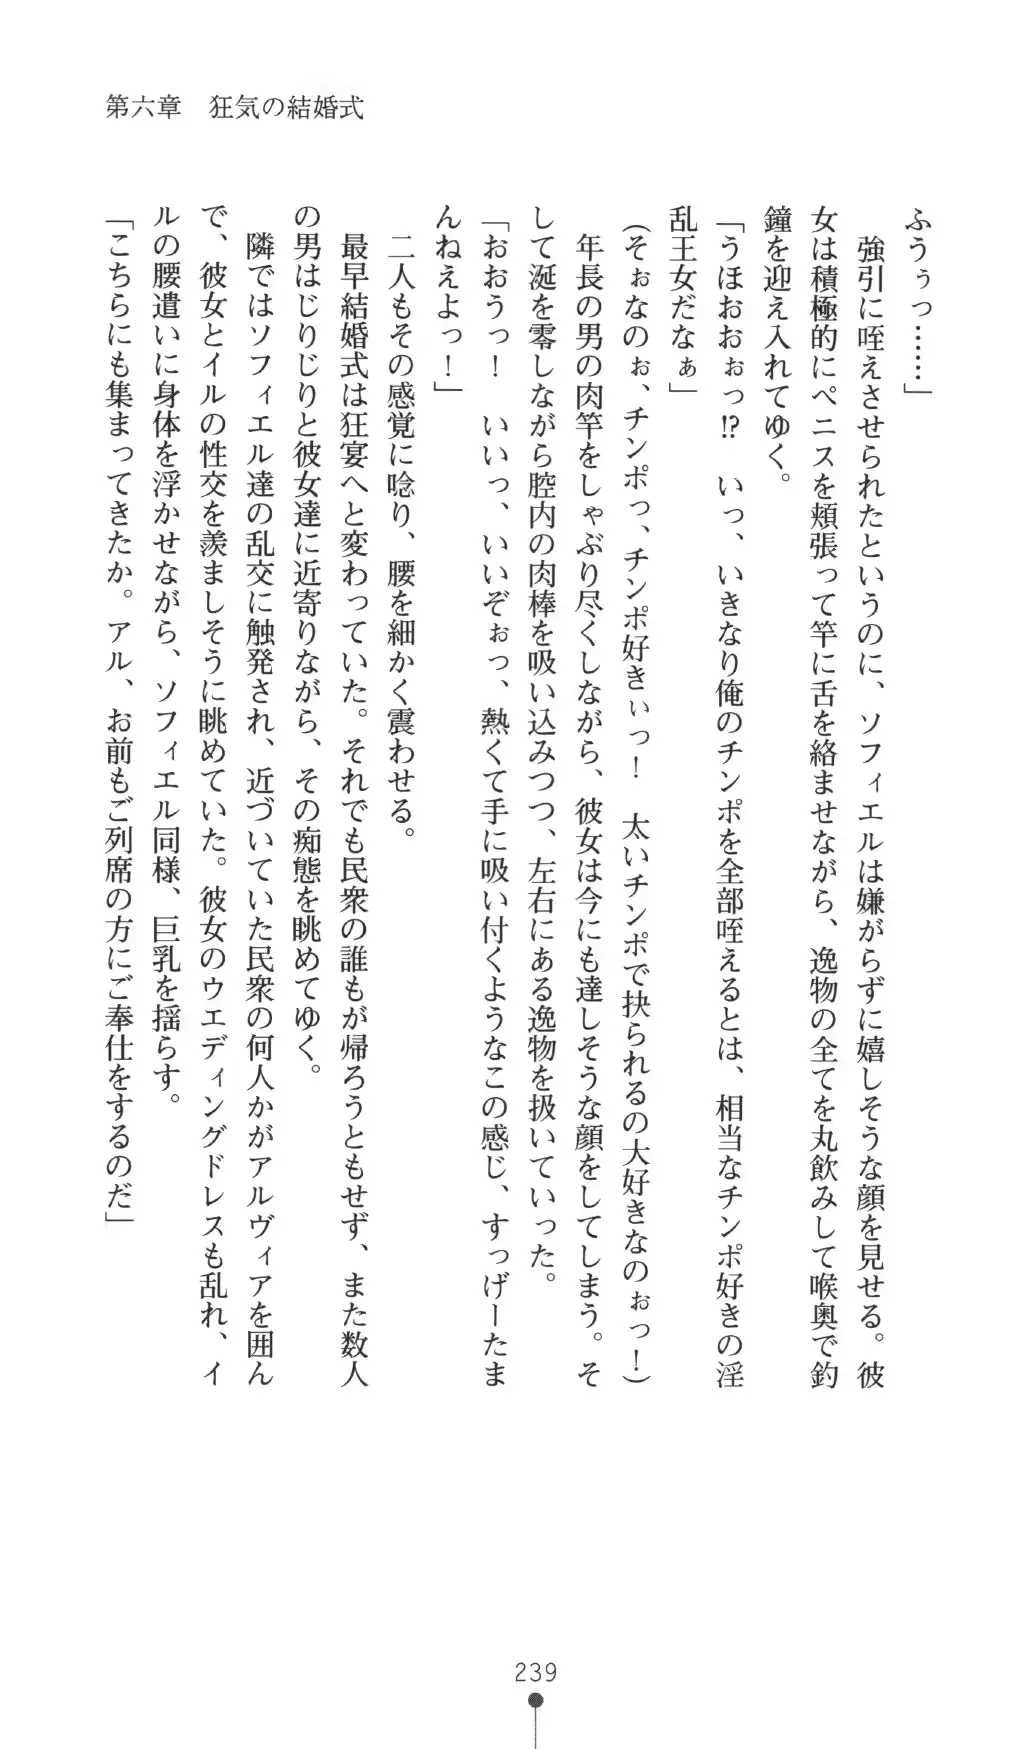 第六章　狂気の結婚式
ふうぅっ……」
　強引に咥えさせられたというのに、ソフィエルは嫌がらずに嬉しそうな顔を見せる。彼
女は積極的にペニスを頬張って竿に舌を絡ませながら、逸物の全てを丸飲みして喉奥で釣
鐘を迎え入れてゆく。
「うほおおぉっ⁉　いっ、いきなり俺のチンポを全部咥えるとは、相当なチンポ好きの淫
乱王女だなぁ」
（そぉなのぉ、チンポっ、チンポ好きぃっ！　太いチンポで抉られるの大好きなのぉっ！）
　年長の男の肉竿をしゃぶり尽くしながら、彼女は今にも達しそうな顔をしてしまう。そ
して涎を零しながら腔内の肉棒を吸い込みつつ、左右にある逸物を扱いていった。
「おおうっ！　いいっ、いいぞぉっ、熱くて手に吸い付くようなこの感じ、すっげーたま
んねえよっ！」
　二人もその感覚に唸り、腰を細かく震わせる。
　最早結婚式は狂宴へと変わっていた。それでも民衆の誰もが帰ろうともせず、また数人
の男はじりじりと彼女達に近寄りながら、その痴態を眺めてゆく。
　隣ではソフィエル達の乱交に触発され、近づいていた民衆の何人かがアルヴィアを囲ん
で、彼女とイルの性交を羨ましそうに眺めていた。彼女のウエディングドレスも乱れ、イ
ルの腰遣いに身体を浮かせながら、ソフィエル同様、巨乳を揺らす。
「こちらにも集まってきたか。アル、お前もご列席の方にご奉仕をするのだ」
239